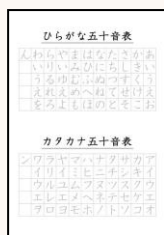 ひらがな五十音表
んわらやまはなたさかあ
いりいみひにちしきい
うるゆむふぬつすくう
えれえめへねてせけえ
をろよもほのとそこお
カタカナ五十音表
ンワラヤマハナタサカア
イリイミヒニチシキイ
ウルユムフヌツスクウ
エレエメヘネテセケエ
ヲロヨモホノトソコオ